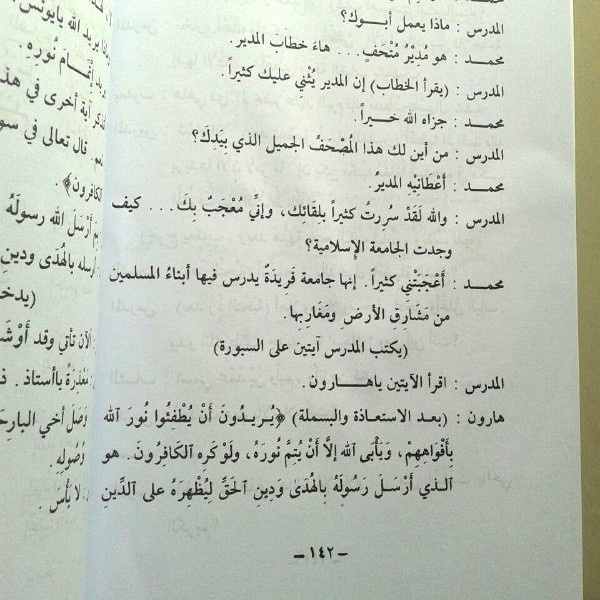 المدرس : ماذا يعمل أبوك؟
محمد : هو مُدِيْرُ مُتْحَفٍ... هاءَ خطابَ المدير.
المدرس : (يقرأ الخطاب) إن المدير يُثْنِي عليك كثيراً.
محمد : جزاه الله خيراً.
المدرس : من أين لك هذا المُصْحَفُ الجميل الذي بِيَدِكَ؟
محمد : أَعْطَانِيْهِ المديرُ.
المدرس : والله لَقَدْ سُرِرتُ كثيراً بلِقَائِك، وإنِّي مُعْجَبٌ بِكَ... كيف
وجدت الجامعة الإِسلامية؟
محمد : أَعْجَبَتْنِي كثيراً. إنها جامعة فَرِيدَةٌ يدرس فيها أبناءُ المسلمين
من مَشَارِقِ الأرضِ ومَغَارِبِها.
(يكتب المدرس آيتين على السبورة)
المدرس : اقرأ الآيتين ياهارون.
هارون : (بعد الاستعاذة والبسملة) ﴿يُرِيدُونَ أَنْ يُطْفِئُوا نُورَ الله
بِأَفْوَاهِهِمْ، وَيَأْبَى ٱلله إلَّا أَنْ يُتِمَّ نُورَهُ، ولَوْ كَرِهِ ٱلكَافِرُونَ. هو
ٱلذي أَرْسَلَ رَسُولَهُ بِالهُدَىٰ وَدِينِ ٱلحَقِّ لِيُظْهِرَهُ على ٱلدِّينِ
– ١٤٢ –
بريد الله يايونس
إِتْمَامَ نُورِهِ.
آية أخرى في هذ
قال تعالى في سو
الكافرون﴾.
أَرْسَلَ الله رسولَهُ
أرسله بالهُدَى ودينِ
(يدخ
الآن تأتي وقد أَوْشَ
مَعْذِرَةً ياأستاذ.
وَصَلَ أخي البارِحَ
وُصُولِهِ.
لا بأس.